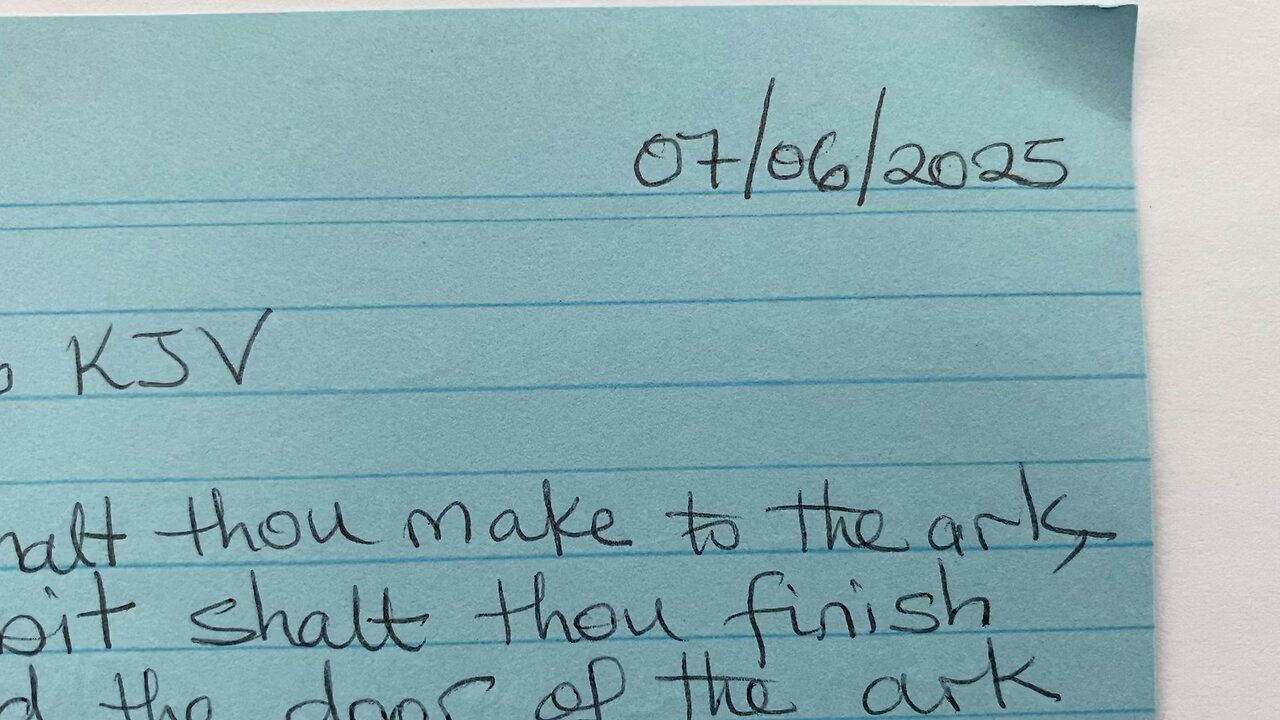 07/06/2025
KJV
halt thou make to the ark,
bit shalt thou finish
the door of the ark